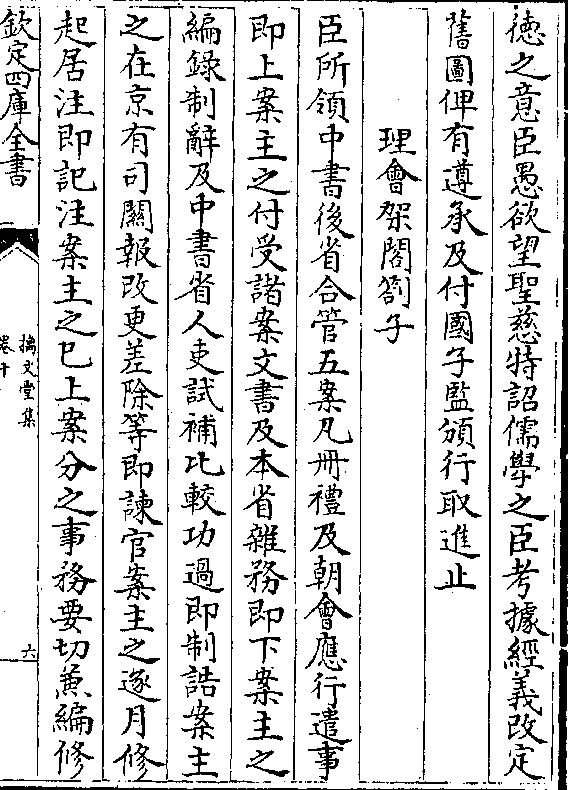 徳之意臣愚欲望聖慈特詔儒學之臣考據經義改定
舊圖俾有遵承及付國子監頒行取進止
理會架閣劄子
臣所領中書後省合管五案凡冊禮及朝會應行遣事
即上案主之付受諸案文書及本省雜務即下案主之
編錄制辭及中書省人吏試補比較功過即制誥案主
之在京有司關報改更差除等即諫官案主之逐月修
起居注即記注案主之已上案分之事務要切兼編修
欽定四庫全書
摛文堂集
卷十
六